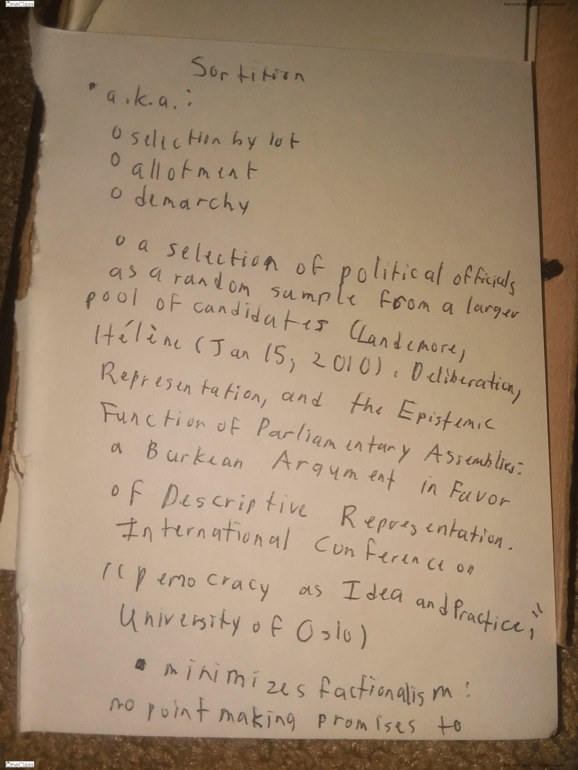 OneClass
Sortition
• a.k.a.:
o selection by lot
o allotment
o demarchy
o a selection of political officials
as a random sample from a larger
pool of candidates (Landemore,
Hélène (Jan 15, 2010). Deliberation,
Representation, and the Epistemic
Function of Parliamentary Assemblies:
a Burkean Argument in Favor
of Descriptive Representation.
International Conference on
"Democracy as Idea and Practice,"
University of Oslo)
▪ minimizes factionalism:
no point making promises to
OneClass